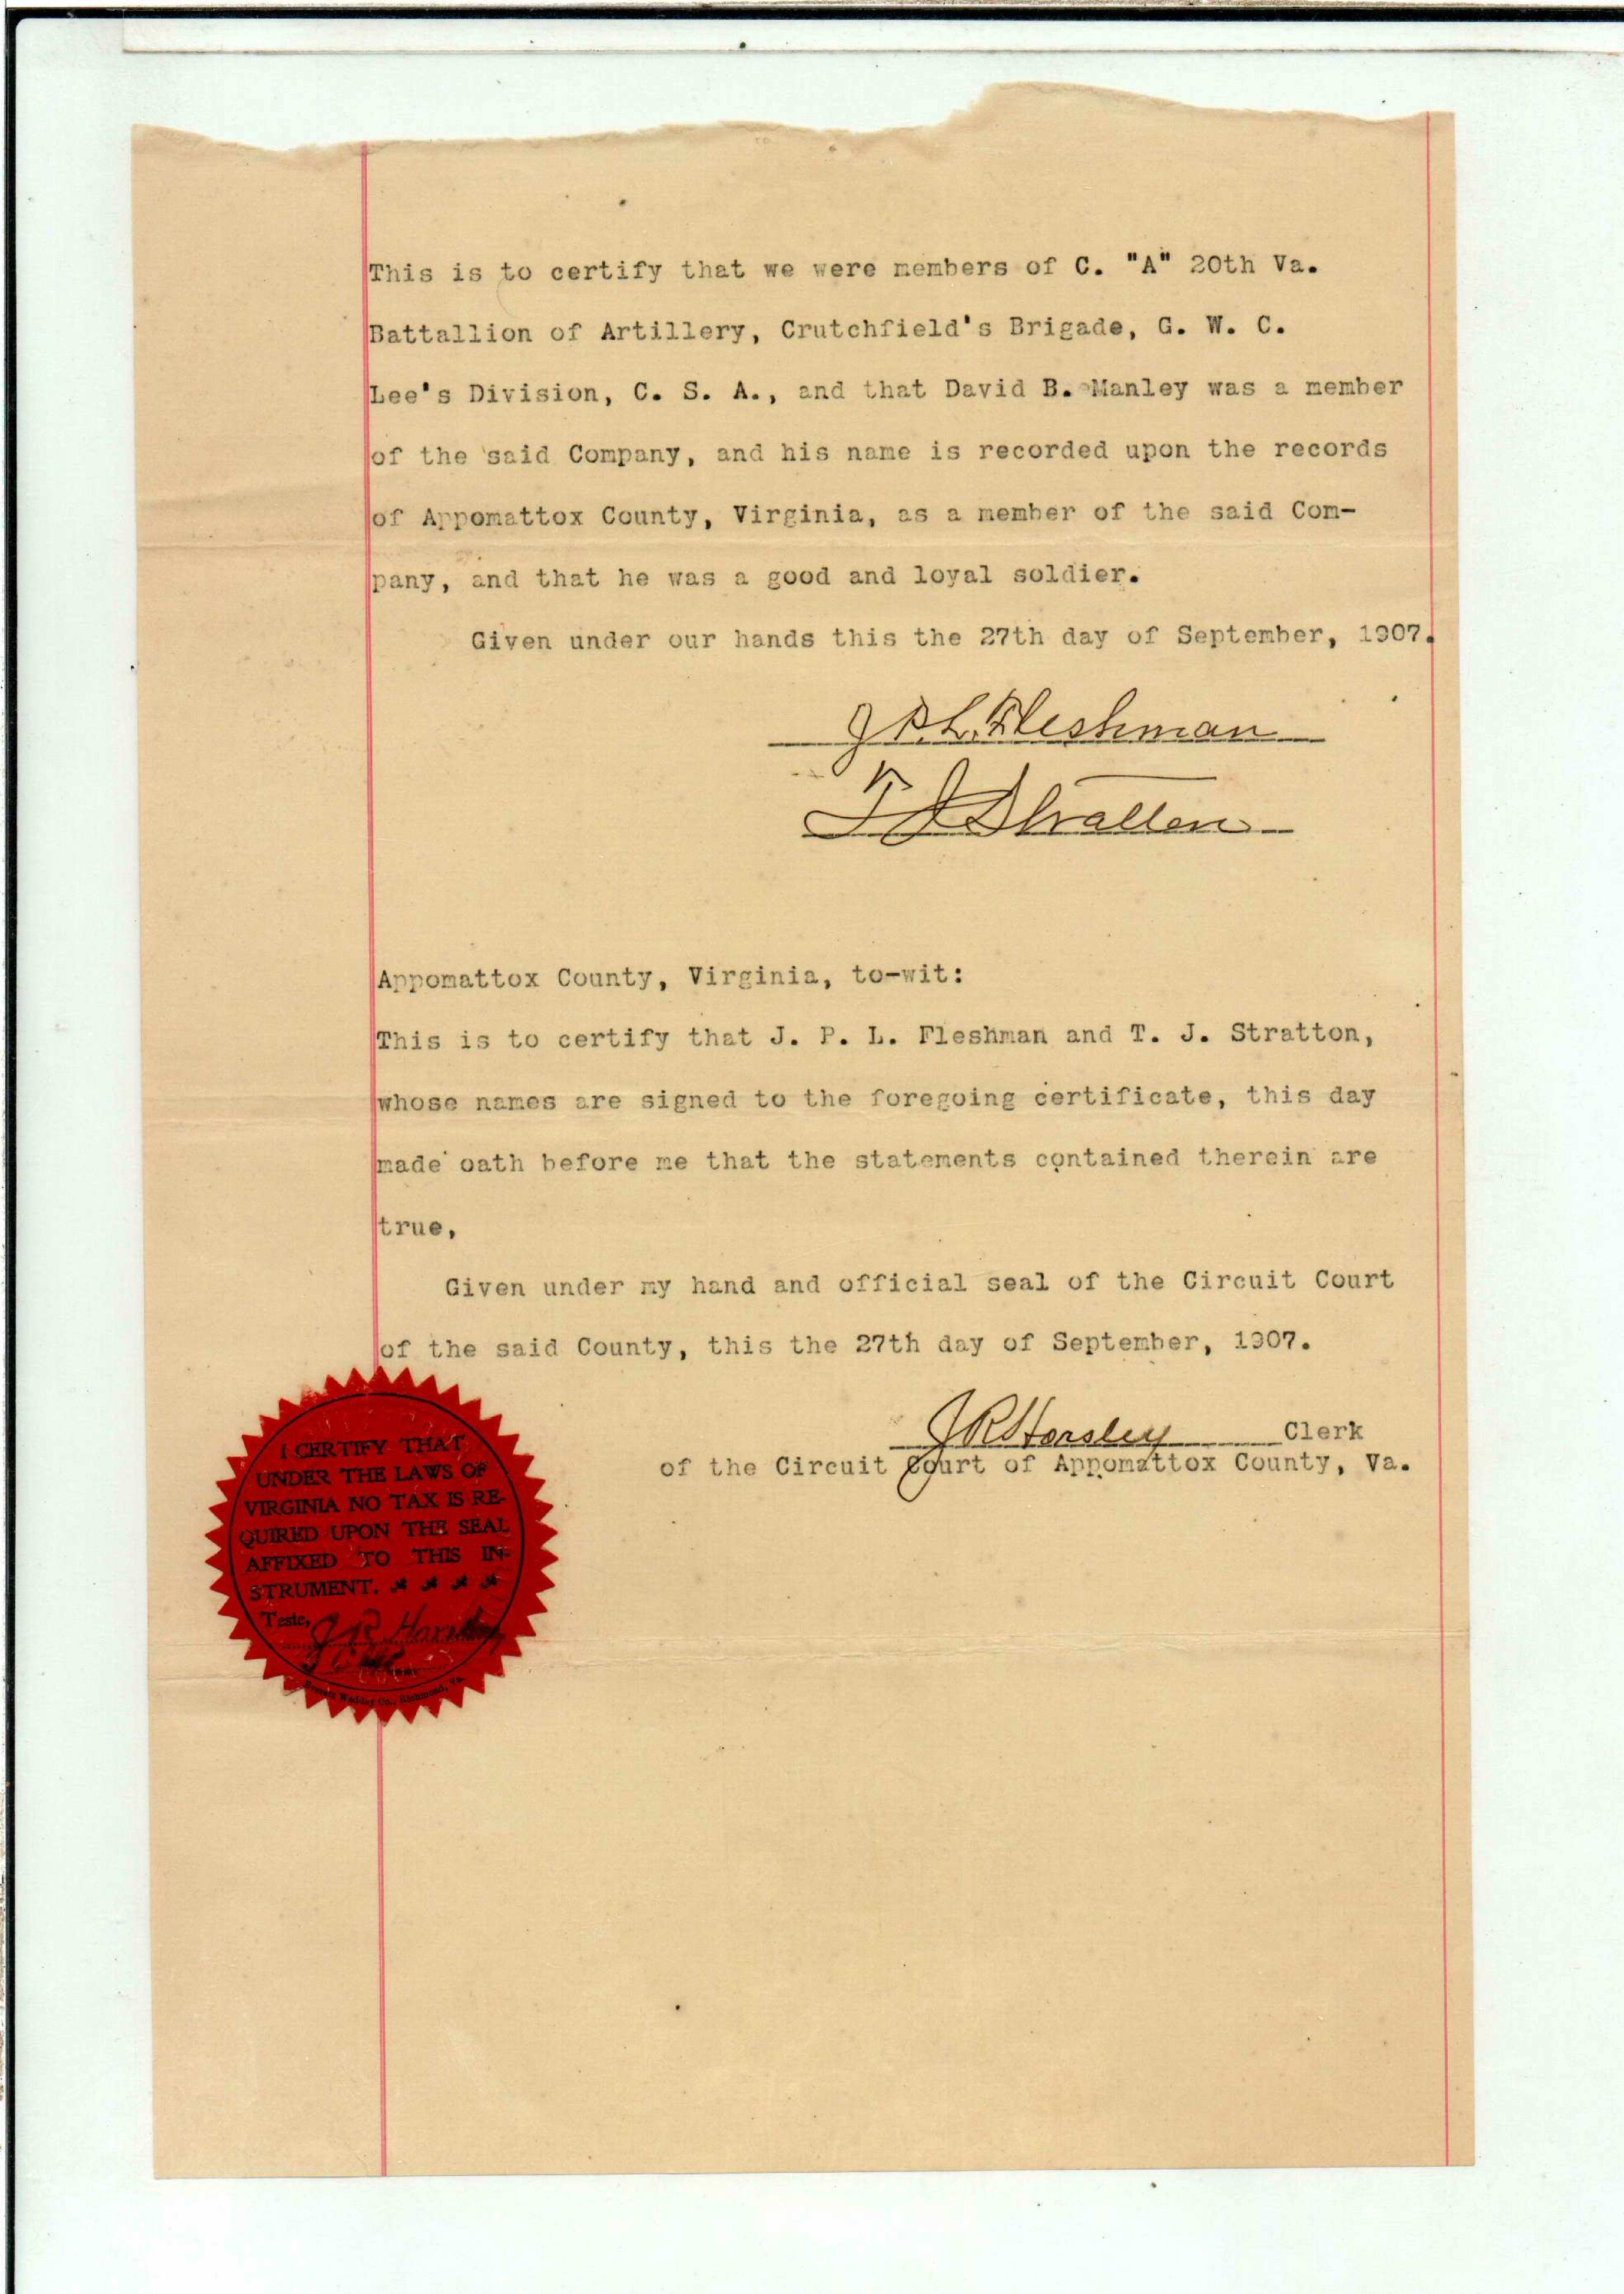 This is to certify that we were members of C. "A" 20th Va.
Battallion of Artillery, Crutchfield's Brigade, G. W. C.
Lee's Division, C. S. A., and that David B. Manley was a member
of the said Company, and his name is recorded upon the records
of Appomattox County, Virginia, as a member of the said Com-
pany, and that he was a good and loyal soldier.
Given under our hands this the 27th day of September, 1907.
J P. L. Fleshman
T J Stratton
Appomattox County, Virginia, to-wit:
This is to certify that J. P. L. Fleshman and T. J. Stratton,
whose names are signed to the foregoing certificate, this day
made oath before me that the statements contained therein are
true,
Given under my hand and official seal of the Circuit Court
of the said County, this the 27th day of September, 1907.
J R Horsley Clerk
of the Circuit Court of Appomattox County, Va.
I CERTIFY THAT
UNDER THE LAWS OF
VIRGINIA NO TAX IS RE-
QUIRED UPON THE SEAL
AFFIXED TO THIS IN-
STRUMENT.
Teste,
J R Horsley
Waddey Co., Richmond, Va.